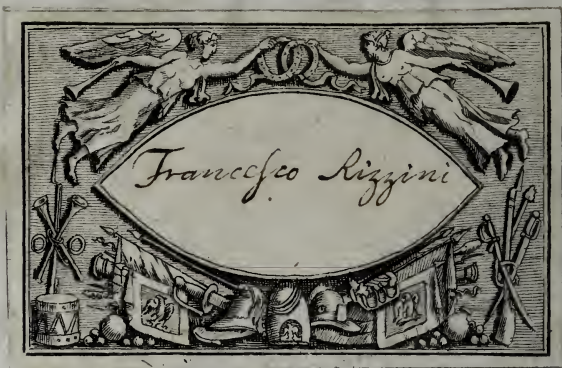 Francesco Rizzini